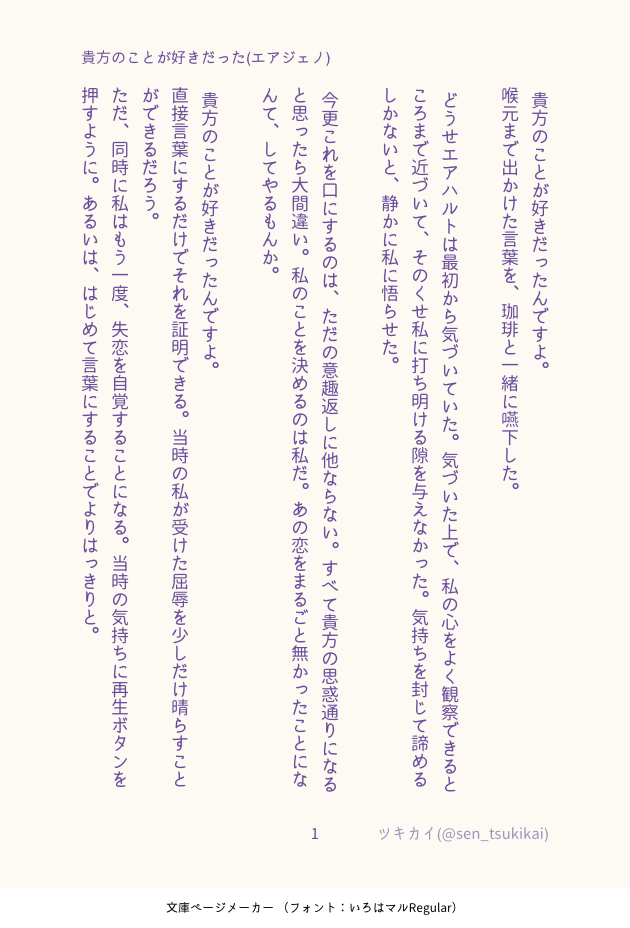 貴方のことが好きだった(エアジェノ)
貴方のことが好きだったんですよ。
喉元まで出かけた言葉を、珈琲と一緒に嚥下した。
どうせエアハルトは最初から気づいていた。気づいた上で、私の心をよく観察できると
ころまで近づいて、そのくせ私に打ち明ける隙を与えなかった。気持ちを封じて諦める
しかないと、静かに私に悟らせた。
今更これを口にするのは、ただの意趣返しに他ならない。すべて貴方の思惑通りになる
と思ったら大間違い。私のことを決めるのは私だ。あの恋をまるごと無かったことにな
んて、してやるもんか。
貴方のことが好きだったんですよ。
直接言葉にするだけでそれを証明できる。当時の私が受けた屈辱を少しだけ晴らすこと
ができるだろう。
ただ、同時に私はもう一度、失恋を自覚することになる。当時の気持ちに再生ボタンを
押すように。あるいは、はじめて言葉にすることでよりはっきりと。
1
ツキカイ(@sen_tsukikai)
文庫ページメーカー （フォント：いろはマルRegular）